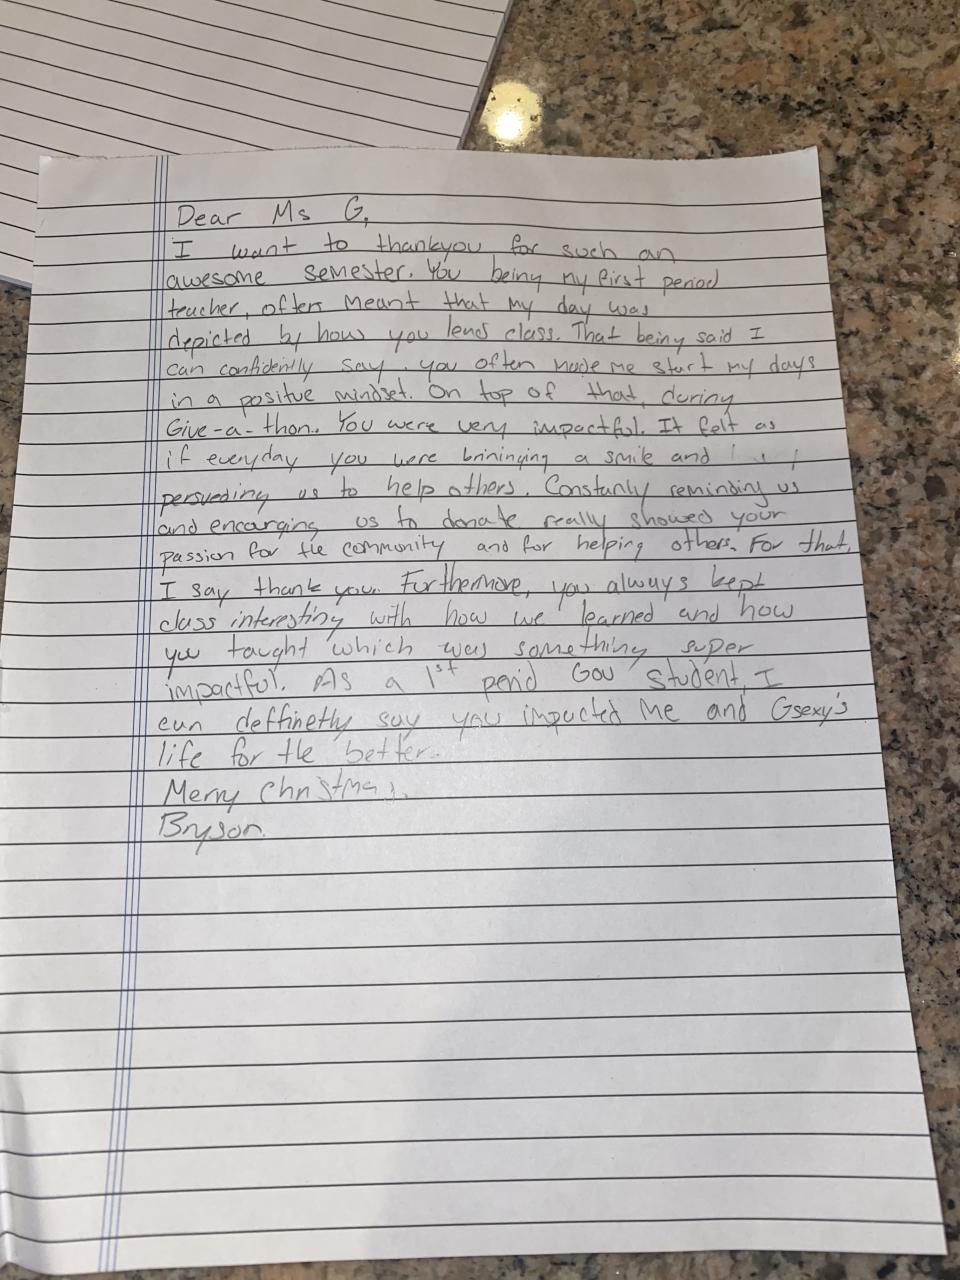 Dear Ms G,
I want to thankyou for such an
awesome semester. You being my first period
teacher, often meant that my day was
depicted by how you lend class. That being said I
can confidently say, you often made me start my days
in a positive mindset. On top of that, during
Give-a-thon. You were very impactful. It felt as
if everyday you were brininging a smile and
persueding us to help others. Constanly reminding us
and encarging us to donate really showed your
passion for the community and for helping others. For that,
I say thank you. Furthermore, you always kept
class interesting with how we learned and how
you taught which was something super
impactful. As a 1st period Gov student, I
can deffinetly say you impacted me and Gsexy's
life for the better.
Merry Christmas,
Bryson.